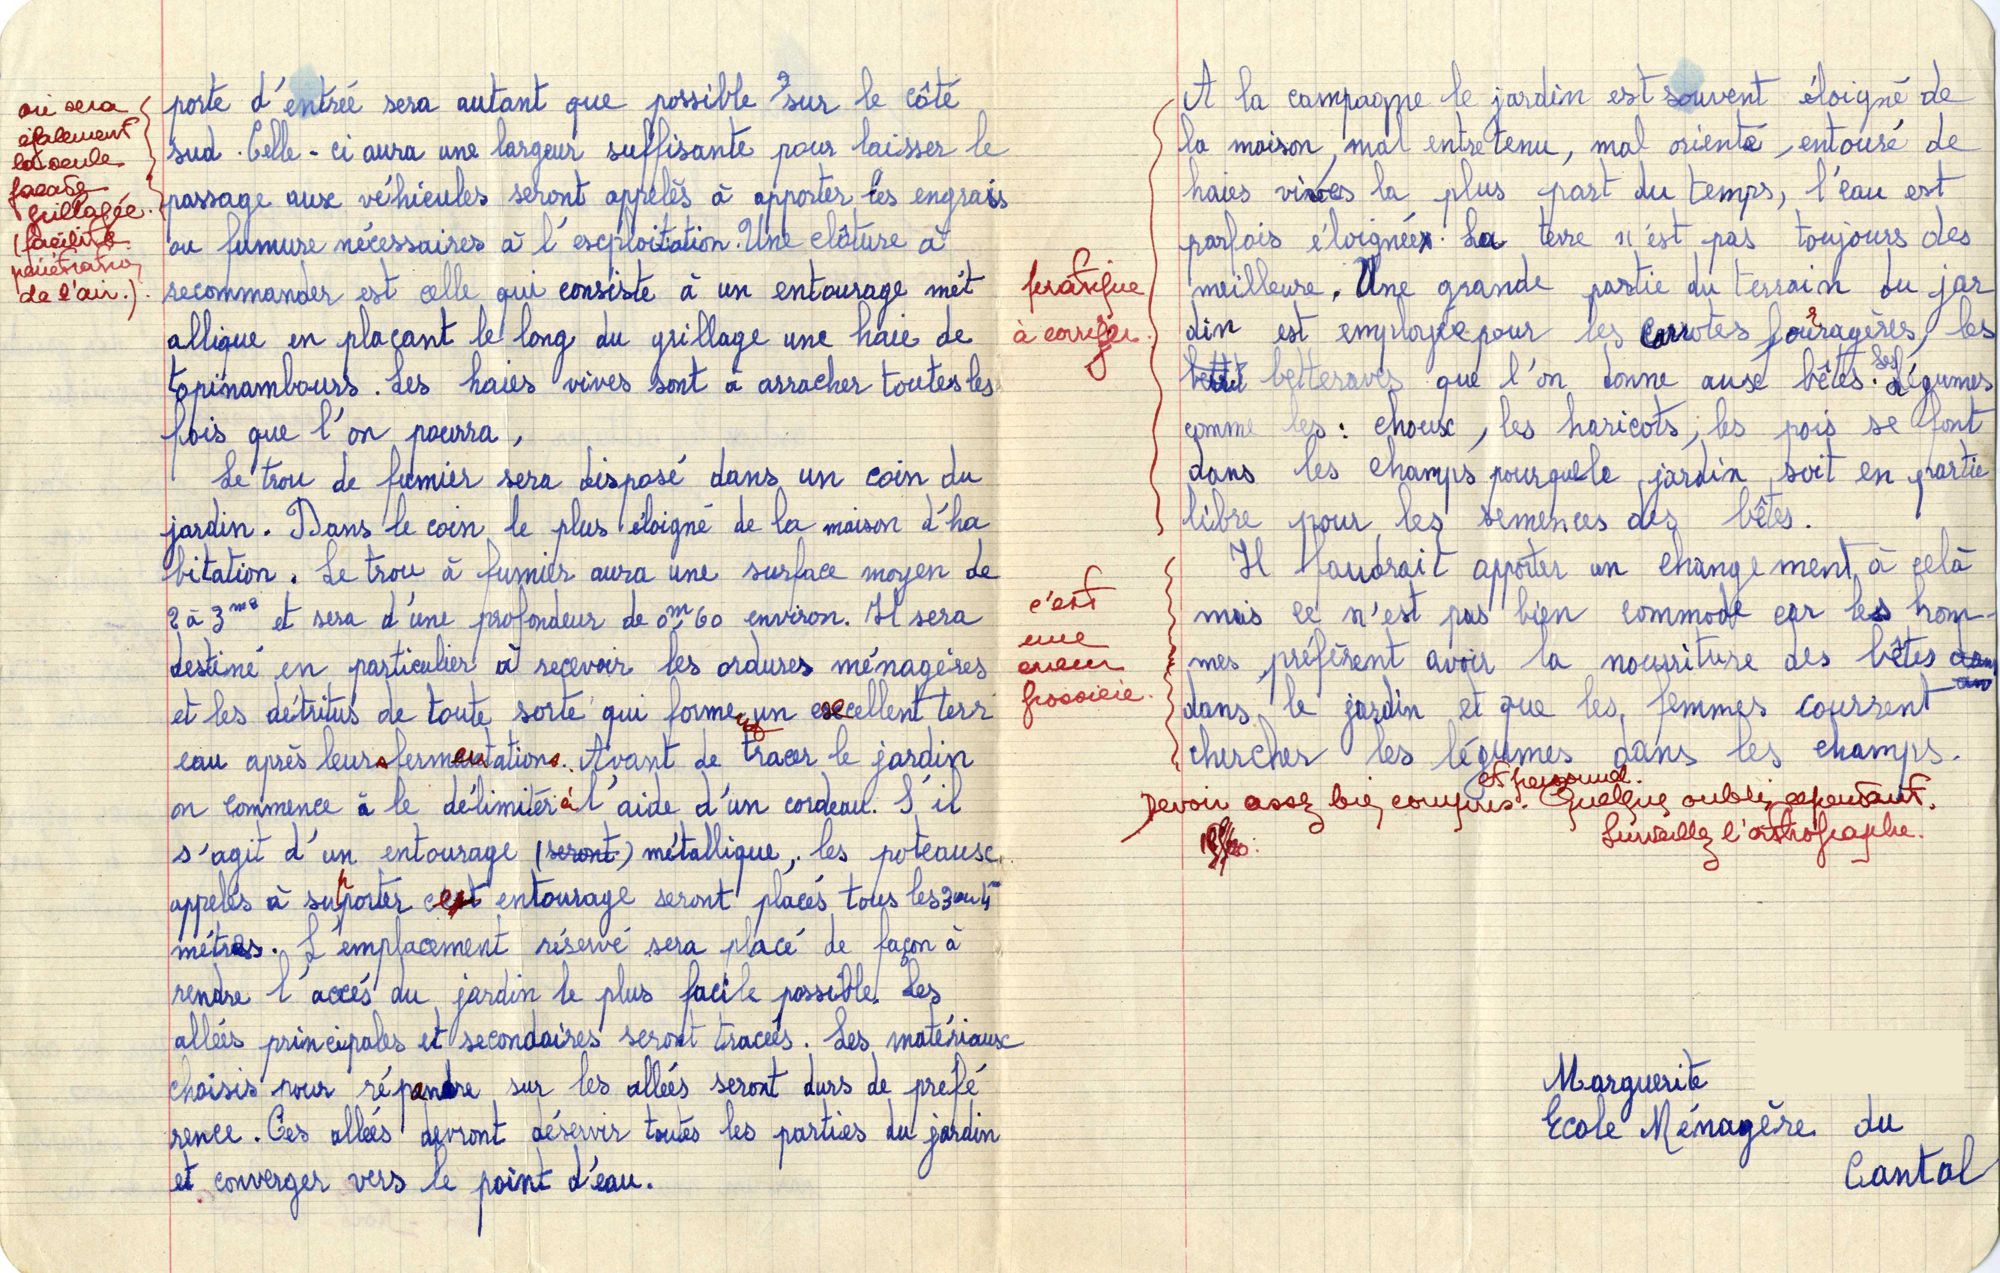 où sera
également
la seule
façade
grillagée.
(facilite
pénétration
de l'air.)
porte d'entrée sera autant que possible sur le côté
sud. Celle-ci aura une largeur suffisante pour laisser le
passage aux véhicules seront appelés à apporter les engrais
ou fumure nécessaires à l'exploitation. Une clôture à
recommander est celle qui consiste à un entourage mét
allique en plaçant le long du grillage une haie de
topinambours. Les haies vives sont à arracher toutes les
fois que l'on pourra,
Le trou de fumier sera disposé dans un coin du
jardin. Dans le coin le plus éloigné de la maison d'ha
bitation. Le trou à fumier aura une surface moyen de
2 à 3 m2 et sera d'une profondeur de 0m60 environ. Il sera
destiné en particulier à recevoir les ordures ménagères
et les détritus de toute sorte qui forme un excellent terr
eau après leurs fermentations. Avant de tracer le jardin
on commence à le délimiter à l'aide d'un cordeau. S'il
s'agit d'un entourage (seront) métallique, les poteaux
appelés à supporter cet entourage seront placés tous les 3 ou 4 m
mètres. L'emplacement réservé sera placé de façon à
rendre l'accés du jardin le plus facile possible. Les
allées principales et secondaires seront tracées. Les matériaux
choisis pour répandre sur les allées seront durs de préfé
rence. Ces allées devront déservir toutes les parties du jardin
et converger vers le point d'eau.
A la campagne le jardin est souvent éloigné de
la maison, mal entretenu, mal orienté, entouré de
haies vives la plus part du temps, l'eau est
parfois éloignée. La terre n'est pas toujours des
meilleure. Une grande partie du terrain ou jar
din est employée pour les carrotes fourragères, les
betteraves que l'on donne aux bêtes. Les légumes
comme les : choux, les haricots, les pois se font
dans les champs pour que le jardin soit en partie
libre pour les semences des bêtes.
pratique
à corriger.
Il faudrait apporter un changement à celà
mais ce n'est pas bien commode car les hom-
mes préfèrent avoir la nourriture des bêtes
dans le jardin et que les femmes courrent
chercher les légumes dans les champs.
c'est
une
erreur
grossière.
et personnel.
Devoir assez bien compris. Quelques oublis cependant.
Surveillez l'orthographe.
Marguerite
Ecole Ménagère du
Cantal